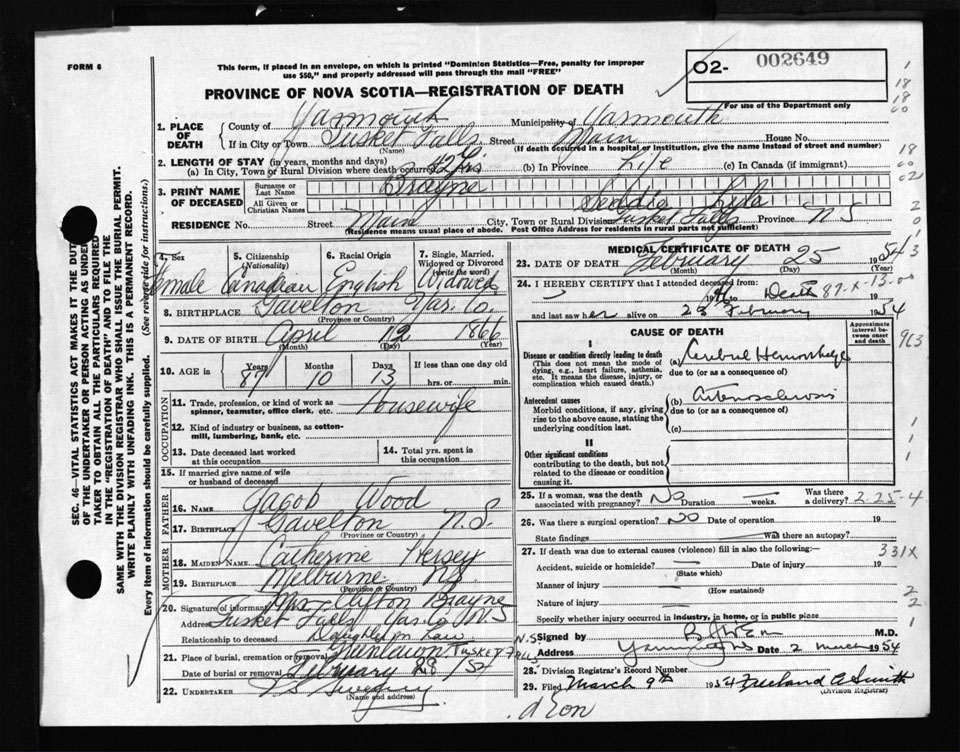 FORM 6
This form, if placed in an envelope, on which is printed "Dominion Statistics—Free, penalty for improper
use $50," and properly addressed will pass through the mail "FREE"
02- 002649
For use of the Department only
PROVINCE OF NOVA SCOTIA—REGISTRATION OF DEATH
1. PLACE OF DEATH
County of Yarmouth Municipality of Yarmouth
If in City or Town Tusket Falls Street Main House No.
(Name) (If death occurred in a hospital or institution, give the name instead of street and number)
2. LENGTH OF STAY (in years, months and days)
(a) In City, Town or Rural Division where death occurred 42 Yrs (b) In Province Life (c) In Canada (if immigrant)
3. PRINT NAME OF DECEASED
Surname or Last Name Brayne
All Given or Christian Names Lyda
RESIDENCE No. Street Main City, Town or Rural Division Tusket Falls Province N S
(Residence means usual place of abode. Post Office Address for residents in rural parts not sufficient)
4. Sex Female
5. Citizenship (Nationality) Canadian
6. Racial Origin English
7. Single, Married, Widowed or Divorced (write the word) Widowed
8. BIRTHPLACE Gavelton Yar. Co.
(Province or Country)
9. DATE OF BIRTH April 12 1866
(Month) (Day) (Year)
10. AGE in Years 87 Months 10 Days 13 If less than one day old
hrs. or min.
OCCUPATION
11. Trade, profession, or kind of work as
spinner, teamster, office clerk, etc. Housewife
12. Kind of industry or business, as cotton-
mill, lumbering, bank, etc.
13. Date deceased last worked at this occupation
14. Total yrs. spent in this occupation
15. If married give name of wife
or husband of deceased
FATHER
16. Name Jacob Wood
17. Birthplace Gavelton N.S.
(Province or Country)
MOTHER
18. Maiden Name Catherine Hersey
19. Birthplace Melburne NS
(Province or Country)
20. Signature of informant Mrs Clifton Brayne
Address Tusket Falls Yar. Co N S
Relationship to deceased Daughter in Law
21. Place of burial, cremation or removal Greenlawn Tusket Falls N.S.
Date of burial or removal February 28 /54
22. UNDERTAKER Sweeny
(Name and address)
MEDICAL CERTIFICATE OF DEATH
23. DATE OF DEATH February 25 1954
(Month) (Day) (Year)
24. I HEREBY CERTIFY that I attended deceased from
19 to Death 87-X-13-0
and last saw her alive on 23 February 1954
CAUSE OF DEATH
Approximate interval between onset and death
I
Disease or condition directly leading to death (a) Cerebral Hemorrhage
(This does not mean the mode of due to (or as a consequence of)
dying, e.g., heart failure, asthenia,
etc. It means the disease, injury, or
complication which caused death.)
Antecedent causes (b) Arteriosclerosis
Morbid conditions, if any, giving due to (or as a consequence of)
rise to the above cause, stating the
underlying condition last. (c)
II
Other significant conditions
contributing to the death, but not
related to the disease or condition
causing it.
25. If a woman, was the death
associated with pregnancy? No Duration — weeks. Was there a delivery? 2-25-4
26. Was there a surgical operation? No Date of operation 19
State findings Was there an autopsy?
27. If death was due to external causes (violence) fill in also the following:— 331X
Accident, suicide or homicide? Date of injury 19
(State which)
Manner of injury
(How sustained)
Nature of injury
Specify whether injury occurred in industry, in home, or in public place
Signed by M.D.
Address Yarmouth N.S. Date 2 March 1954
28. Division Registrar's Record Number
29. Filed March 9th 1954 Freeland A Smith
(Division Registrar)
SEC. 46—VITAL STATISTICS ACT MAKES IT THE DUTY
OF THE UNDERTAKER OR PERSON ACTING AS UNDER-
TAKER TO OBTAIN ALL THE PARTICULARS REQUIRED
IN THE "REGISTRATION OF DEATH" AND TO FILE THE
SAME WITH THE DIVISION REGISTRAR WHO SHALL ISSUE THE BURIAL PERMIT.
WRITE PLAINLY WITH UNFADING INK. THIS IS A PERMANENT RECORD.
Every item of information should be carefully supplied. (See reverse side for instructions.)